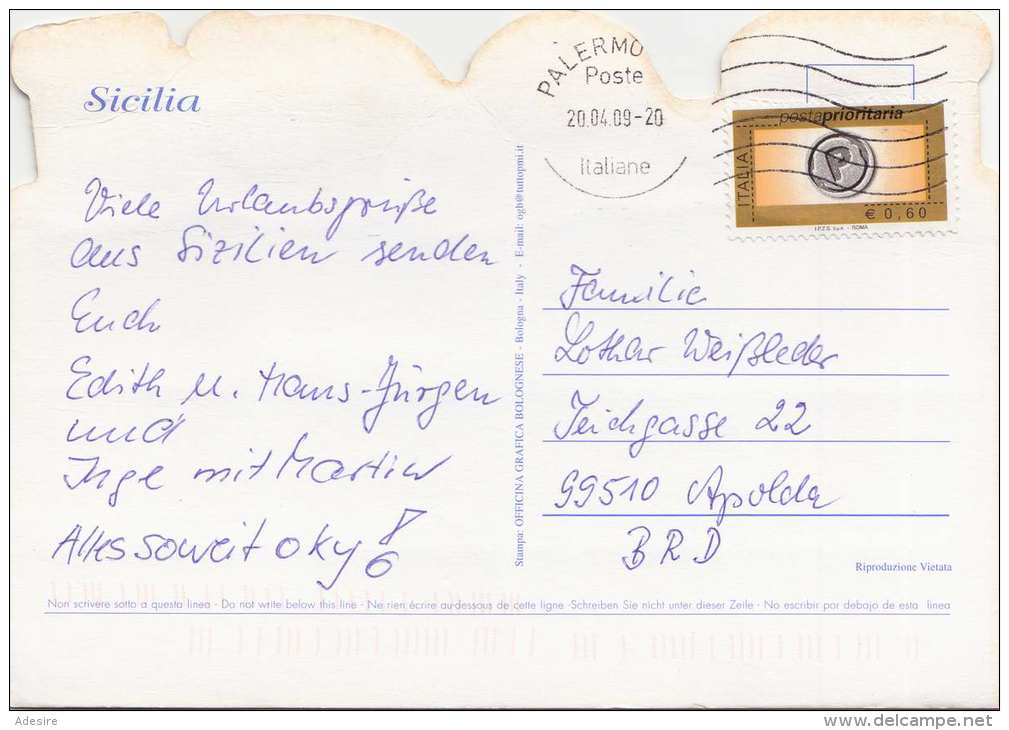 Sicilia
Viele Urlaubsgrüße
aus Sizilien senden
Euch
Edith u. Hans-Jürgen
und
Inge mit Martin
Alles soweit oky!
PALERMO
Poste
20.04.09-20
Italiane
postaprioritaria
P
ITALIA
€ 0,60
I.P.Z.S. S.p.A. - ROMA
Stampa: OFFICINA GRAFICA BOLOGNESE - Bologna - Italy - E-mail: ogb@tuttopmi.it
Familie
Lothar Weißleder
Teichgasse 22
99510 Apolda
BRD
Riproduzione Vietata
Non scrivere sotto a questa linea - Do not write below this line - Ne rien écrire au-dessous de cette ligne -Schreiben Sie nicht unter dieser Zeile - No escribir por debajo de esta linea
Adesire
www.delcampe.net